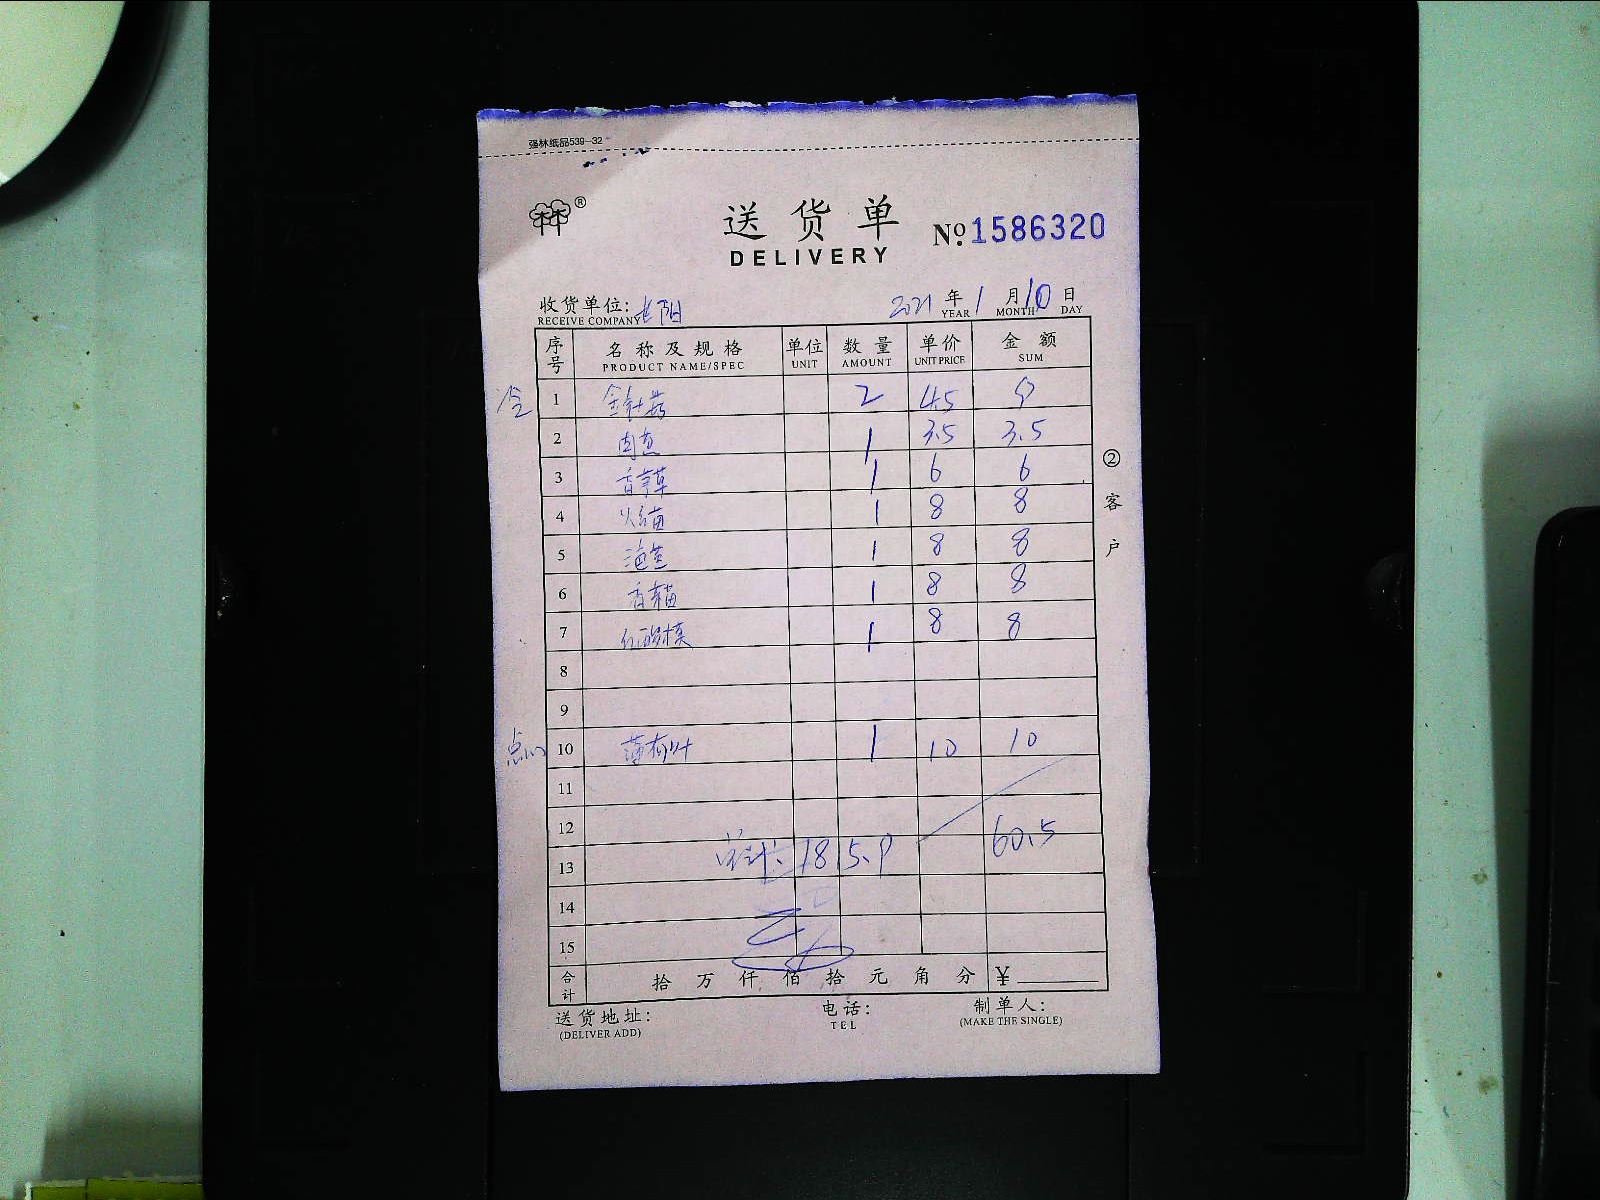 强林纸品539-32
林®
送货单
DELIVERY
No. 1586320
收货单位: 长阳 2021 年 1 月 10 日
RECEIVE COMPANY YEAR MONTH DAY
序号 名称及规格 单位 数量 单价 金额
PRODUCT NAME/SPEC UNIT AMOUNT UNIT PRICE SUM
1 金针菇 2 4.5 9
2 1 3.5 3.5
3 香茅草 1 6 6
4 苗 1 8 8
5 1 8 8
6 苗 1 8 8
7 模 1 8 8
8
9
点心 10 薄荷叶 1 10 10
11
12 60.5
13 总计: 1815.9
14
15
②客户
合计 拾 万 仟 佰 拾 元 角 分 ¥
送货地址: 电话: 制单人:
(DELIVER ADD) TEL (MAKE THE SINGLE)